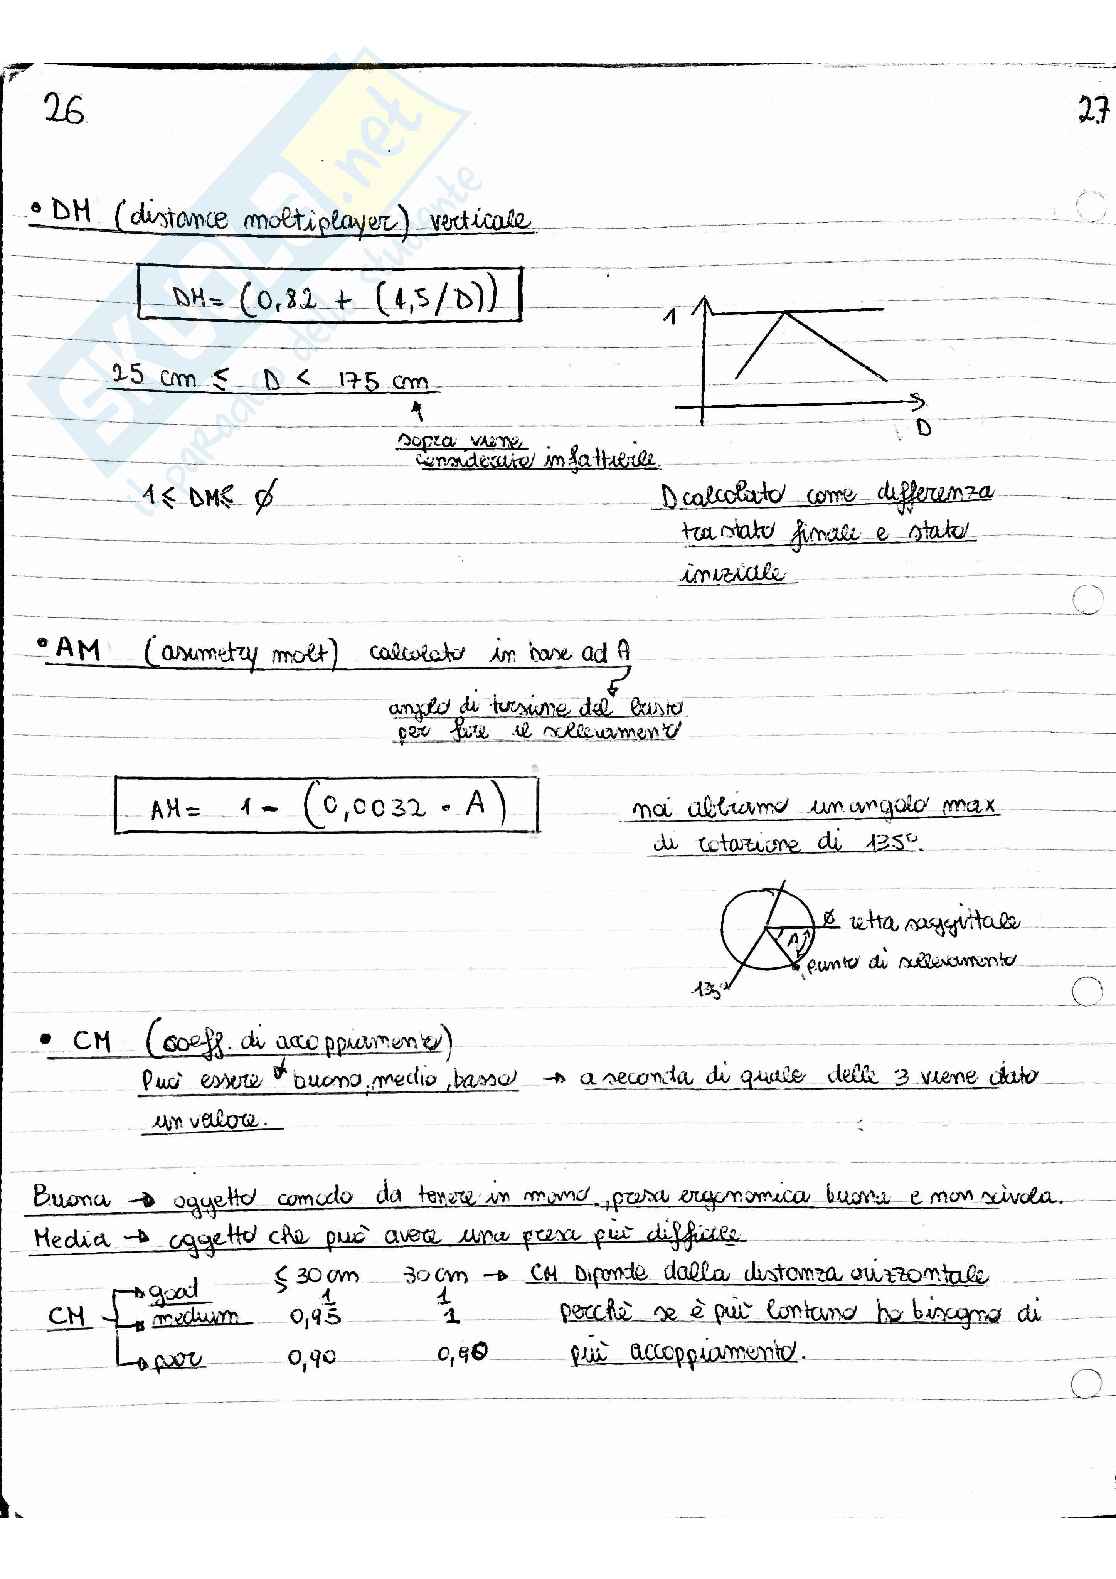 26
27
SKUOLA.net
il paradiso dello studente
• DM (distance moltiplayer) verticale
DM = (0,82 + (4,5/D))
1
D
25 cm ≤ D < 175 cm
sopra viene
considerato infattibile
1 ≤ DM ≤ ∅
D calcolato come differenza
tra stato finale e stato
iniziale
• AM (asimetry molt) calcolato in base ad A
angolo di torsione del busto
per fare il sollevamento
AM = 1 - (0,0032 • A)
noi abbiamo un angolo max
di rotazione di 135°.
∅ retta saggittale
A
punto di sollevamento
135°
• CM (coeff. di accoppiamento)
Può essere buono, medio, basso → a seconda di quale delle 3 viene dato
un valore.
Buona → oggetto comodo da tenere in mano, presa ergonomica buona e non scivola.
Media → oggetto che può avere una presa più difficile
≤ 30 cm 30 cm → CM Diponde dalla distanza orizzontale
good 1 1
CM medium 0,95 1 perchè se è più lontano ho bisogno di
poor 0,90 0,90 più accoppiamento.